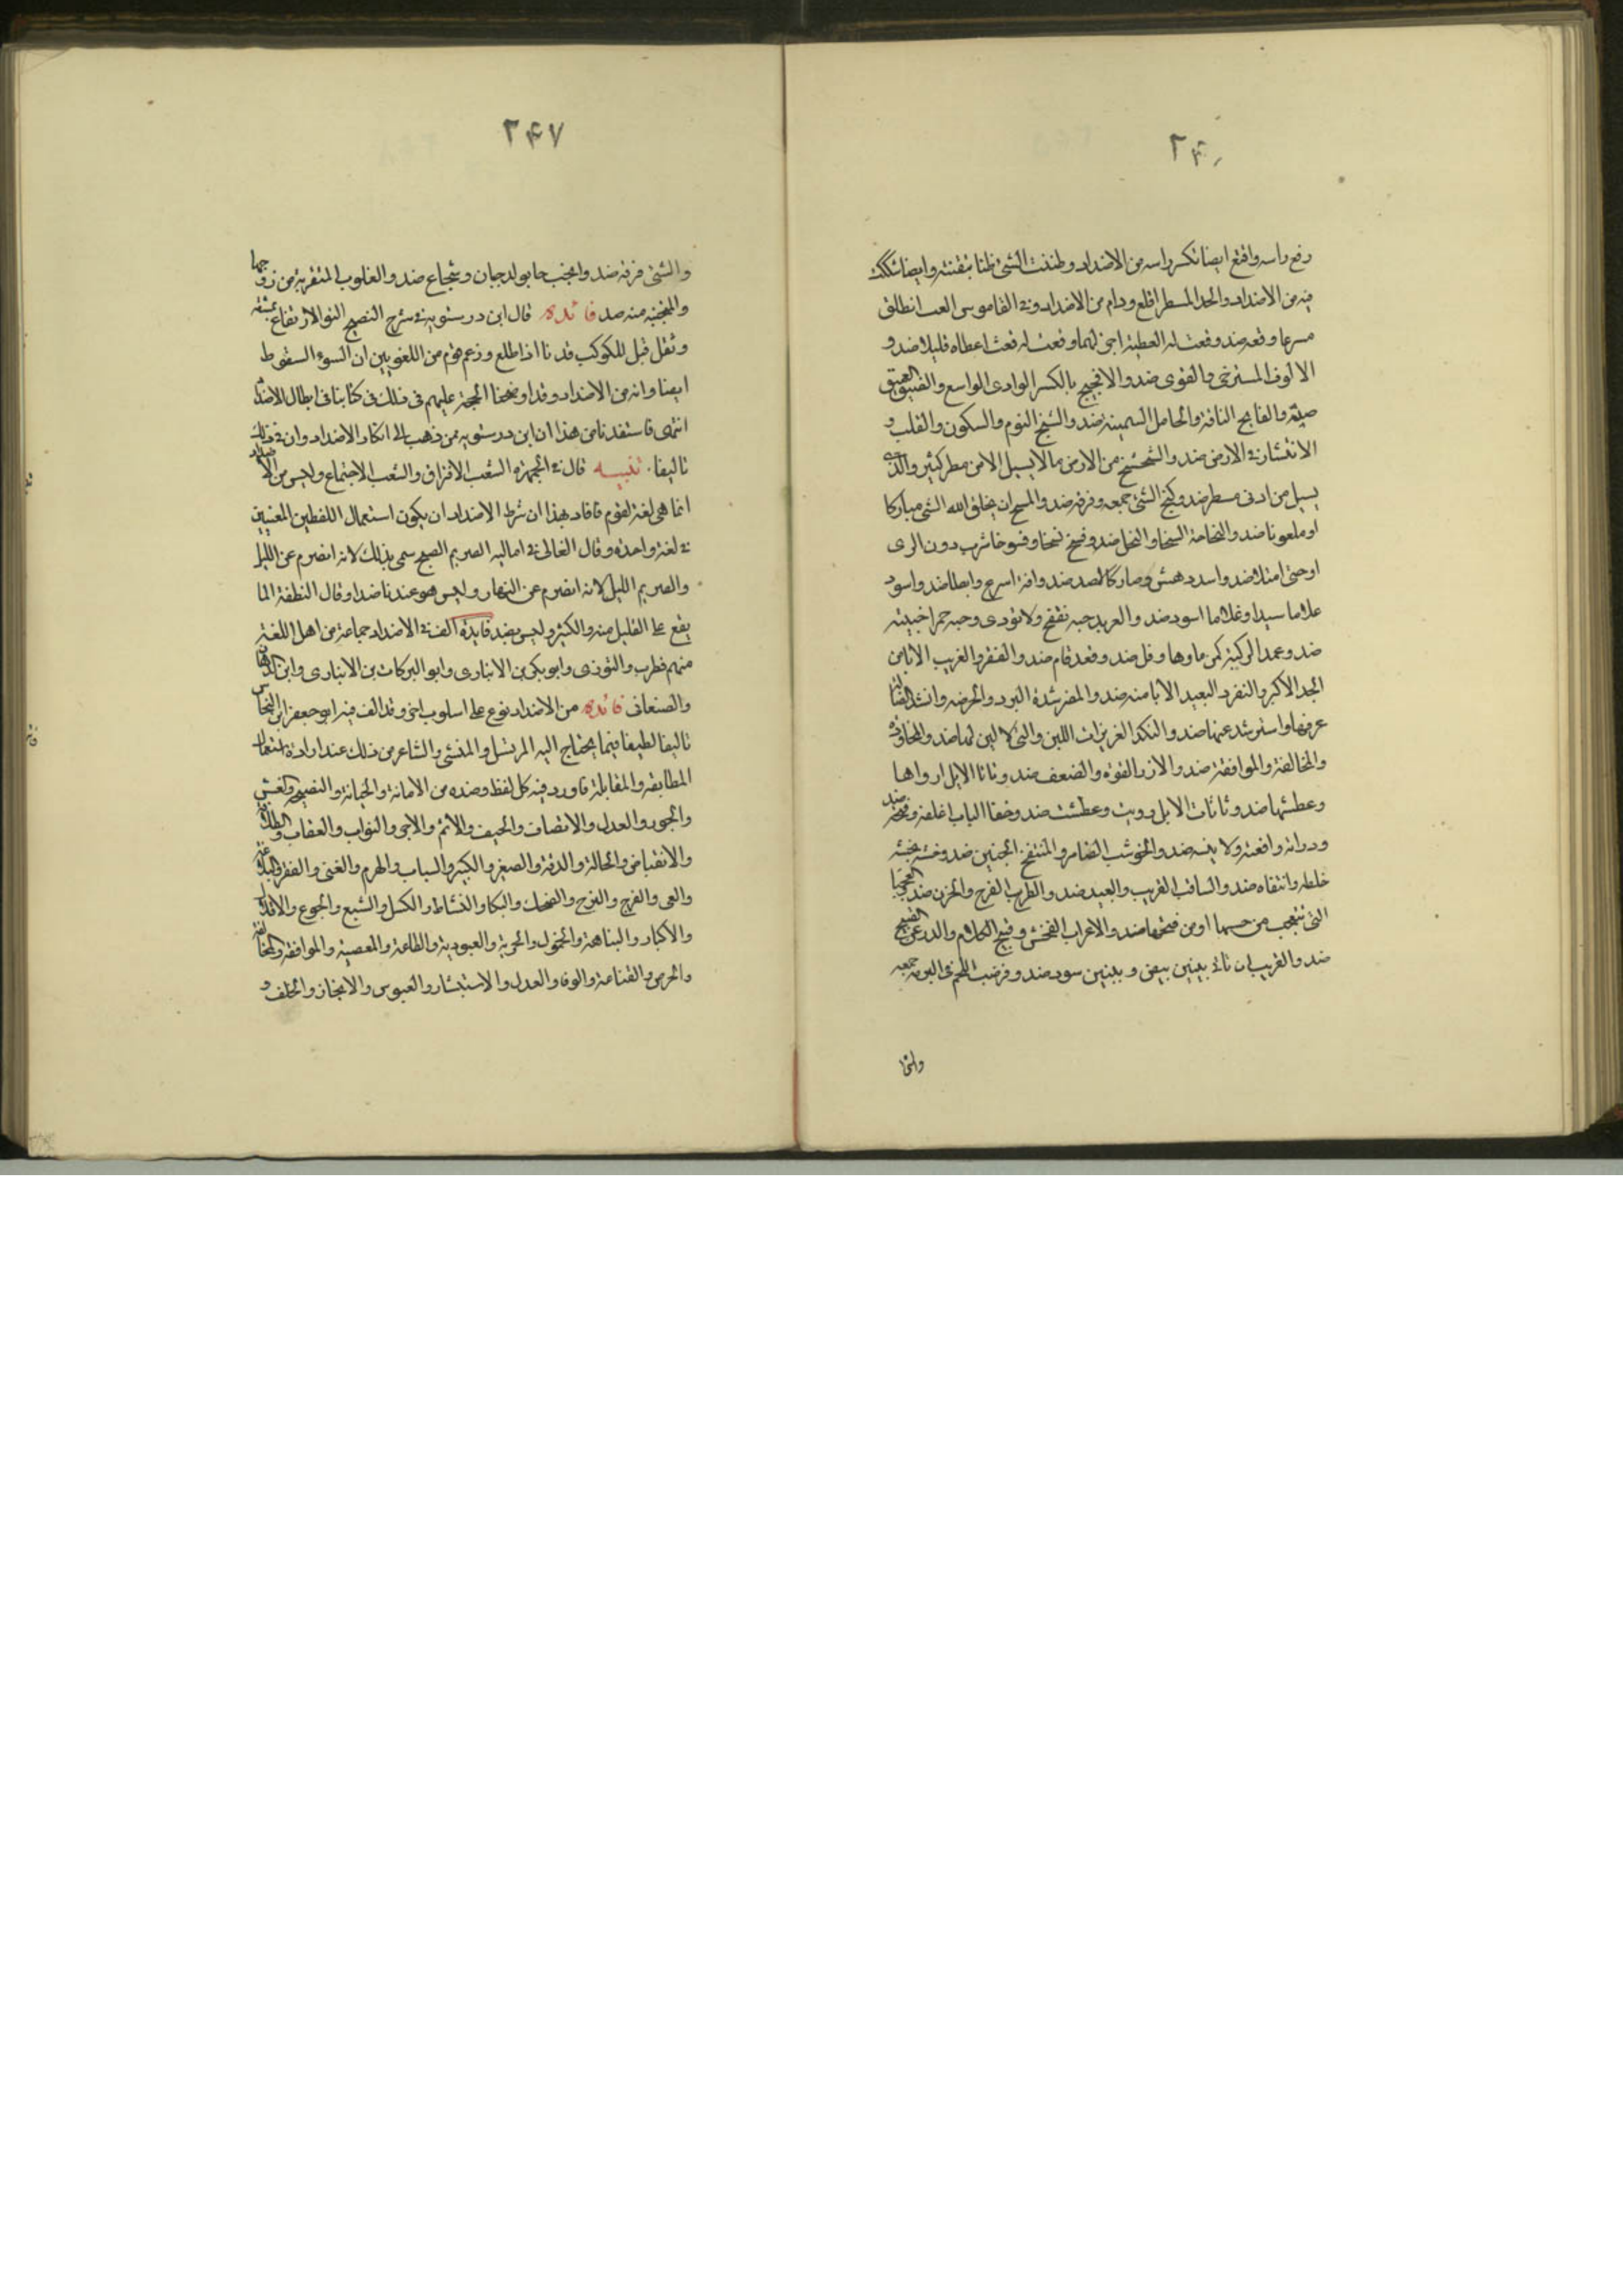 ٢٤
رفع راسه واقنع ايضا نكس راسه من الاضداد وظننت الشئ ظنا تيقنته وايضا شككت
فيه من الاضداد والحد المسطر اقلع ودام من الاضداد وفى القاموس العب انطلق
مسرعا وقعد ضد وقعث له العطية اجزلها وقعث له قعثا اعطاه قليلا ضد و
الالوث المسترخى والقوى ضد والافجيج بالكسر الوادى الواسع والضيق العميق
ضد والفاثج الناقة والحامل السمينة ضد والسبخ النوم والسكون والتقلب و
الانتشار فى الارض ضد والشحشح من الارض ما لا يسيل الا من مطر كثير والذى
يسيل من ادنى مسطر ضد وكثح الشئ جمعه وفرقه ضد والمسح ان يخلق الله الشئ مباركا
او ملعونا ضد والنخاحة السخا والبخل ضد ونسخ نسخا ونسوخا شرب دون الرى
او حتى امتلا ضد واسمد دهش وصار كالصمد ضد وافد اسرع وابطا ضد واسود
غلاما سيدا وغلاما اسود ضد والعربد حية تنفخ ولا توذى وحية حمرا خبيثة
ضد وعمد الركية كثر ماوها وقل ضد وقعد قام ضد والقعدد القريب الابا من
الجد الاكبر والقعدد البعيد الابا منه ضد وانشد الضالة
عرفها واسترشد عنها ضد والنكد الغزيرات اللبن والتى لا لبن لها ضد والمخاوذة
والمخالفة والموافقة ضد والازر القوة والضعف ضد وثاثا الابل ارواها
وعطشها ضد وثاثات الابل رويت وعطشت ضد وجفا الباب اغلقه وفتحه ضد
ودراته دافعته ولاينته ضد والحوشب الضامر والمنتفخ الجنبين ضد وخشبه يخشبه
خلطه وانتقاه ضد والساقب القريب والبعيد ضد والطرب الفرح والحزن ضد
التى تتعجب من حسنها او من قبحها ضد والاعراب الفحش وقبيح الكلام والدرء عن القبيح
ضد والغربيب
وانثا
٢٤٧
والشئ فرقه ضد والمجنب جا بولد جبان وشجاع ضد والغلوب المتقربة من زوجها
والمجتنبه منه ضد فائده قال ابن درستويه فى شرح الفصيح النو الارتفاع بمشقة
وثقل قيل للكوكب قد نا اذا طلع وزعم قوم من اللغويين ان النوء السقوط
ايضا وانه من الاضداد وقد اوضحنا الحجة عليهم فى ذلك فى كتابنا فى ابطال الاضداد
انتهى فاستفدنا من هذا ان ابن درستويه ممن ذهب الى انكار الاضداد وان فى ذلك
تاليفا. تنبيه قال فى الجمهرة الشعب الافتراق والشعب الاجتماع وليس من الاضداد
انما هى لغة لقوم فافاد بهذا ان شرط الاضداد ان يكون استعمال اللفظين المعنيين
فى لغة واحدة وقال القالى فى اماليه الصريم الصبح سمى بذلك لانه انصرم عن الليل
والصريم الليل لانه انصرم عن النهار وليس هو عندنا ضدا وقال النطفة الما
يقع على القليل منه والكثير وليس بضد فايدة الف فى الاضداد جماعة من اهل اللغة
منهم قطرب والتوزى وابو بكر بن الانبارى وابو البركات بن الانبارى وابن الدهان
والصغانى فائده من الاضداد نوع على اسلوب اخر وقد الف فيه ابو جعفر ابن النحاس
تاليفا لطيفا فيما يحتاج اليه المرتسل والمنشى والشاعر من ذلك عند ارادة استعمال
المطابقة والمقابلة فاورد فيه كل لفظ وضده من الامانة والخيانة والنصيحة والغش
والجور والعدل والانصاف والحيف والاثم والاجر والثواب والعقاب
والانقباض والجلالة والدقة والصغر والكبر والشباب والهرم والغنى والفقر والبلاغة
والعى والفرح والترح والضحك والبكا والنشاط والكسل والشبع والجوع والاقلال
والاكثار والنباهة والخمول والحرية والعبودية والطاعة والمعصية والموافقة والمخالفة
والحرص والقناعة والوفا والعدل والاستبشار والعبوس والانجاز والخلف و